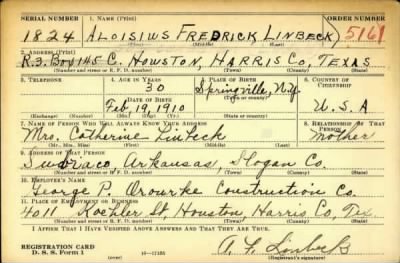 SERIAL NUMBER 1. NAME (Print) ORDER NUMBER
1824 ALOISIUS FREDRICK LINBECK 5161
(First) (Middle) (Last)
2. ADDRESS (Print)
R.3. BOX 145 C. HOUSTON, HARRIS CO, TEXAS
(Number and street or R. F. D. number) (Town) (County) (State)
3. TELEPHONE 4. AGE IN YEARS 5. PLACE OF BIRTH 6. COUNTRY OF CITIZENSHIP
30 Springville, N.Y.
DATE OF BIRTH (Town or county)
Feb. 19, 1910 U.S.A
(Exchange) (Number) (Mo.) (Day) (Yr.) (State or country)
7. NAME OF PERSON WHO WILL ALWAYS KNOW YOUR ADDRESS 8. RELATIONSHIP OF THAT PERSON
Mrs. Catherine Linbeck mother
(Mr., Mrs., Miss) (First) (Middle) (Last)
9. ADDRESS OF THAT PERSON
Subiaco, Arkansas, Logan Co.
(Number and street or R. F. D. number) (Town) (County) (State)
10. EMPLOYER'S NAME
George P. Orourke Construction Co.
11. PLACE OF EMPLOYMENT OR BUSINESS
4011 Koehler St, Houston, Harris Co, Tex.
(Number and street or R. F. D. number) (Town) (County) (State)
I AFFIRM THAT I HAVE VERIFIED ABOVE ANSWERS AND THAT THEY ARE TRUE.
REGISTRATION CARD
D. S. S. Form 1 (over) A. F. Linbeck
(Registrant's signature)